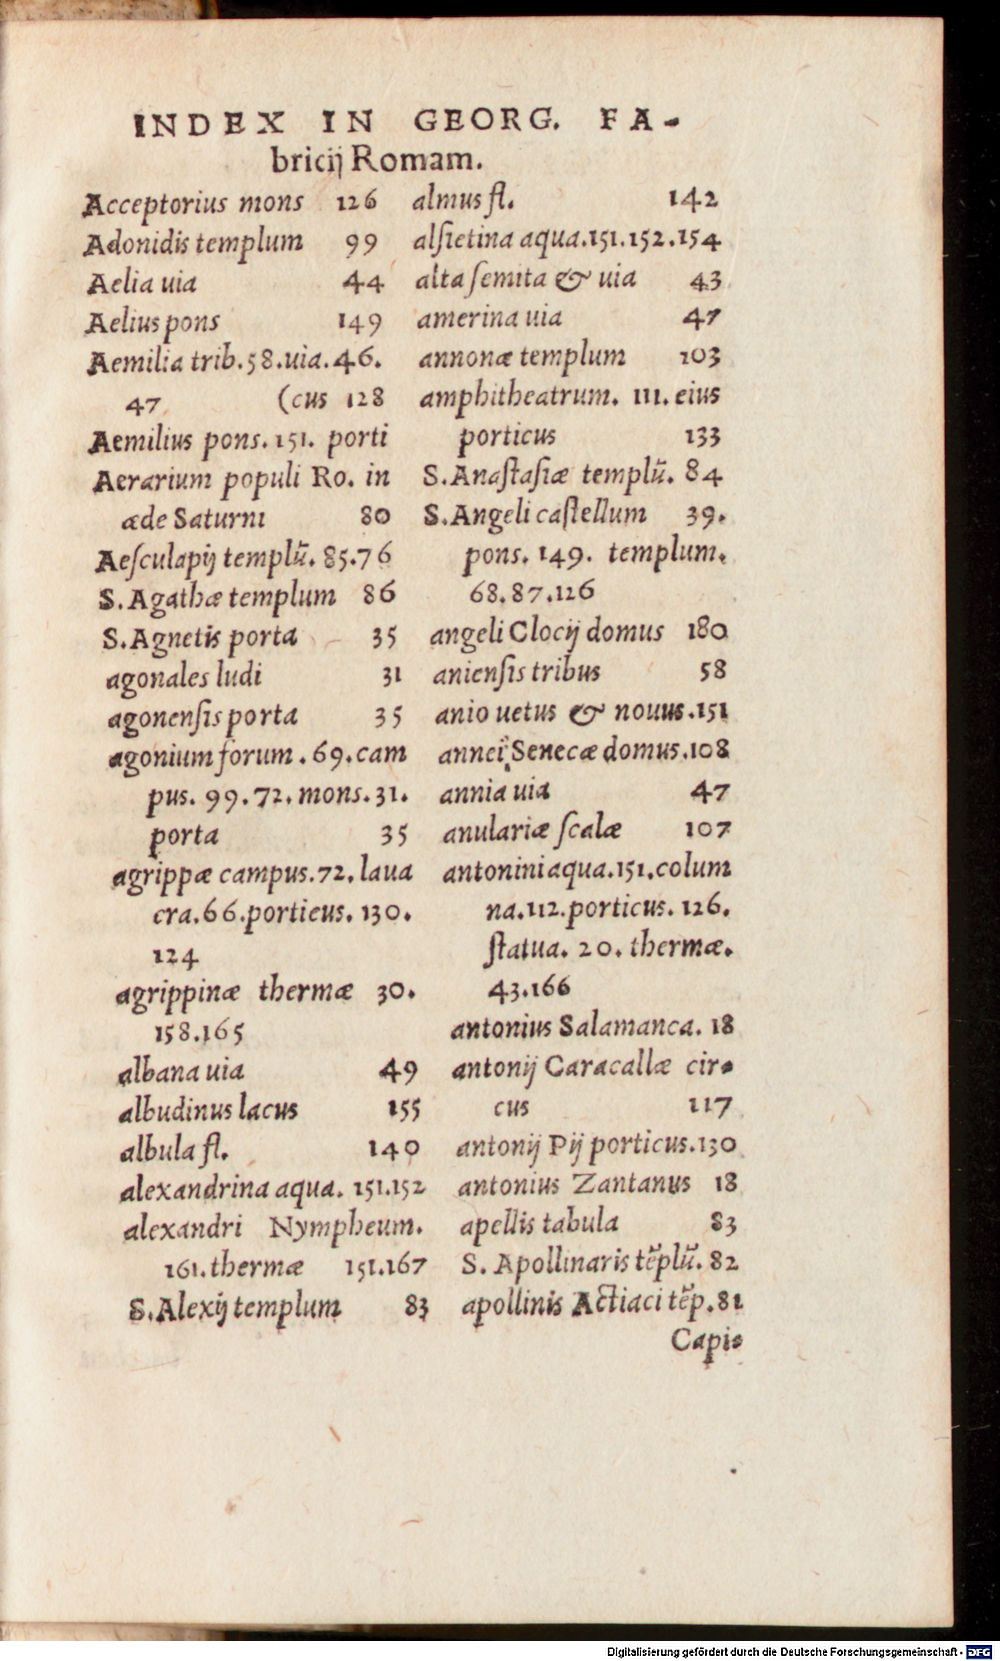 INDEX IN GEORG. FA-
bricij Romam.
Acceptorius mons 126
Adonidis templum 99
Aelia uia 44
Aelius pons 149
Aemilia trib.58.uia.46.
47 (cus 128
Aemilius pons.151. porti
Aerarium populi Ro. in
æde Saturni 80
Aeſculapij templū. 85.76
S.Agathæ templum 86
S.Agnetis porta 35
agonales ludi 31
agonenſis porta 35
agonium forum .69.cam
pus. 99.72.mons.31.
porta 35
agrippæ campus.72.laua
cra.66.porticus.130.
124
agrippinæ thermæ 30.
158.165
albana uia 49
albudinus lacus 155
albula fl. 140
alexandrina aqua. 151.152
alexandri Nympheum.
161.thermæ 151.167
S.Alexij templum 83
almus fl. 142
alſietina aqua.151.152.154
alta ſemita & uia 43
amerina uia 47
annonæ templum 103
amphitheatrum. 111.eius
porticus 133
S.Anaſtaſiæ templū. 84
S.Angeli caſtellum 39.
pons. 149. templum.
68.87.126
angeli Clocij domus 180
anienſis tribus 58
anio uetus & nouus.151
annei Senecæ domus.108
annia uia 47
anulariæ ſcalæ 107
antonini aqua.151.colum
na.112.porticus. 126.
ſtatua. 20. thermæ.
43.166
antonius Salamanca. 18
antonij Caracallæ cir-
cus 117
antonij Pij porticus.130
antonius Zantanus 18
apellis tabula 83
S. Apollinaris tēplū. 82
apollinis Actiaci tēp.81
Capi-
Digitalisierung gefördert durch die Deutsche Forschungsgemeinschaft - DFG